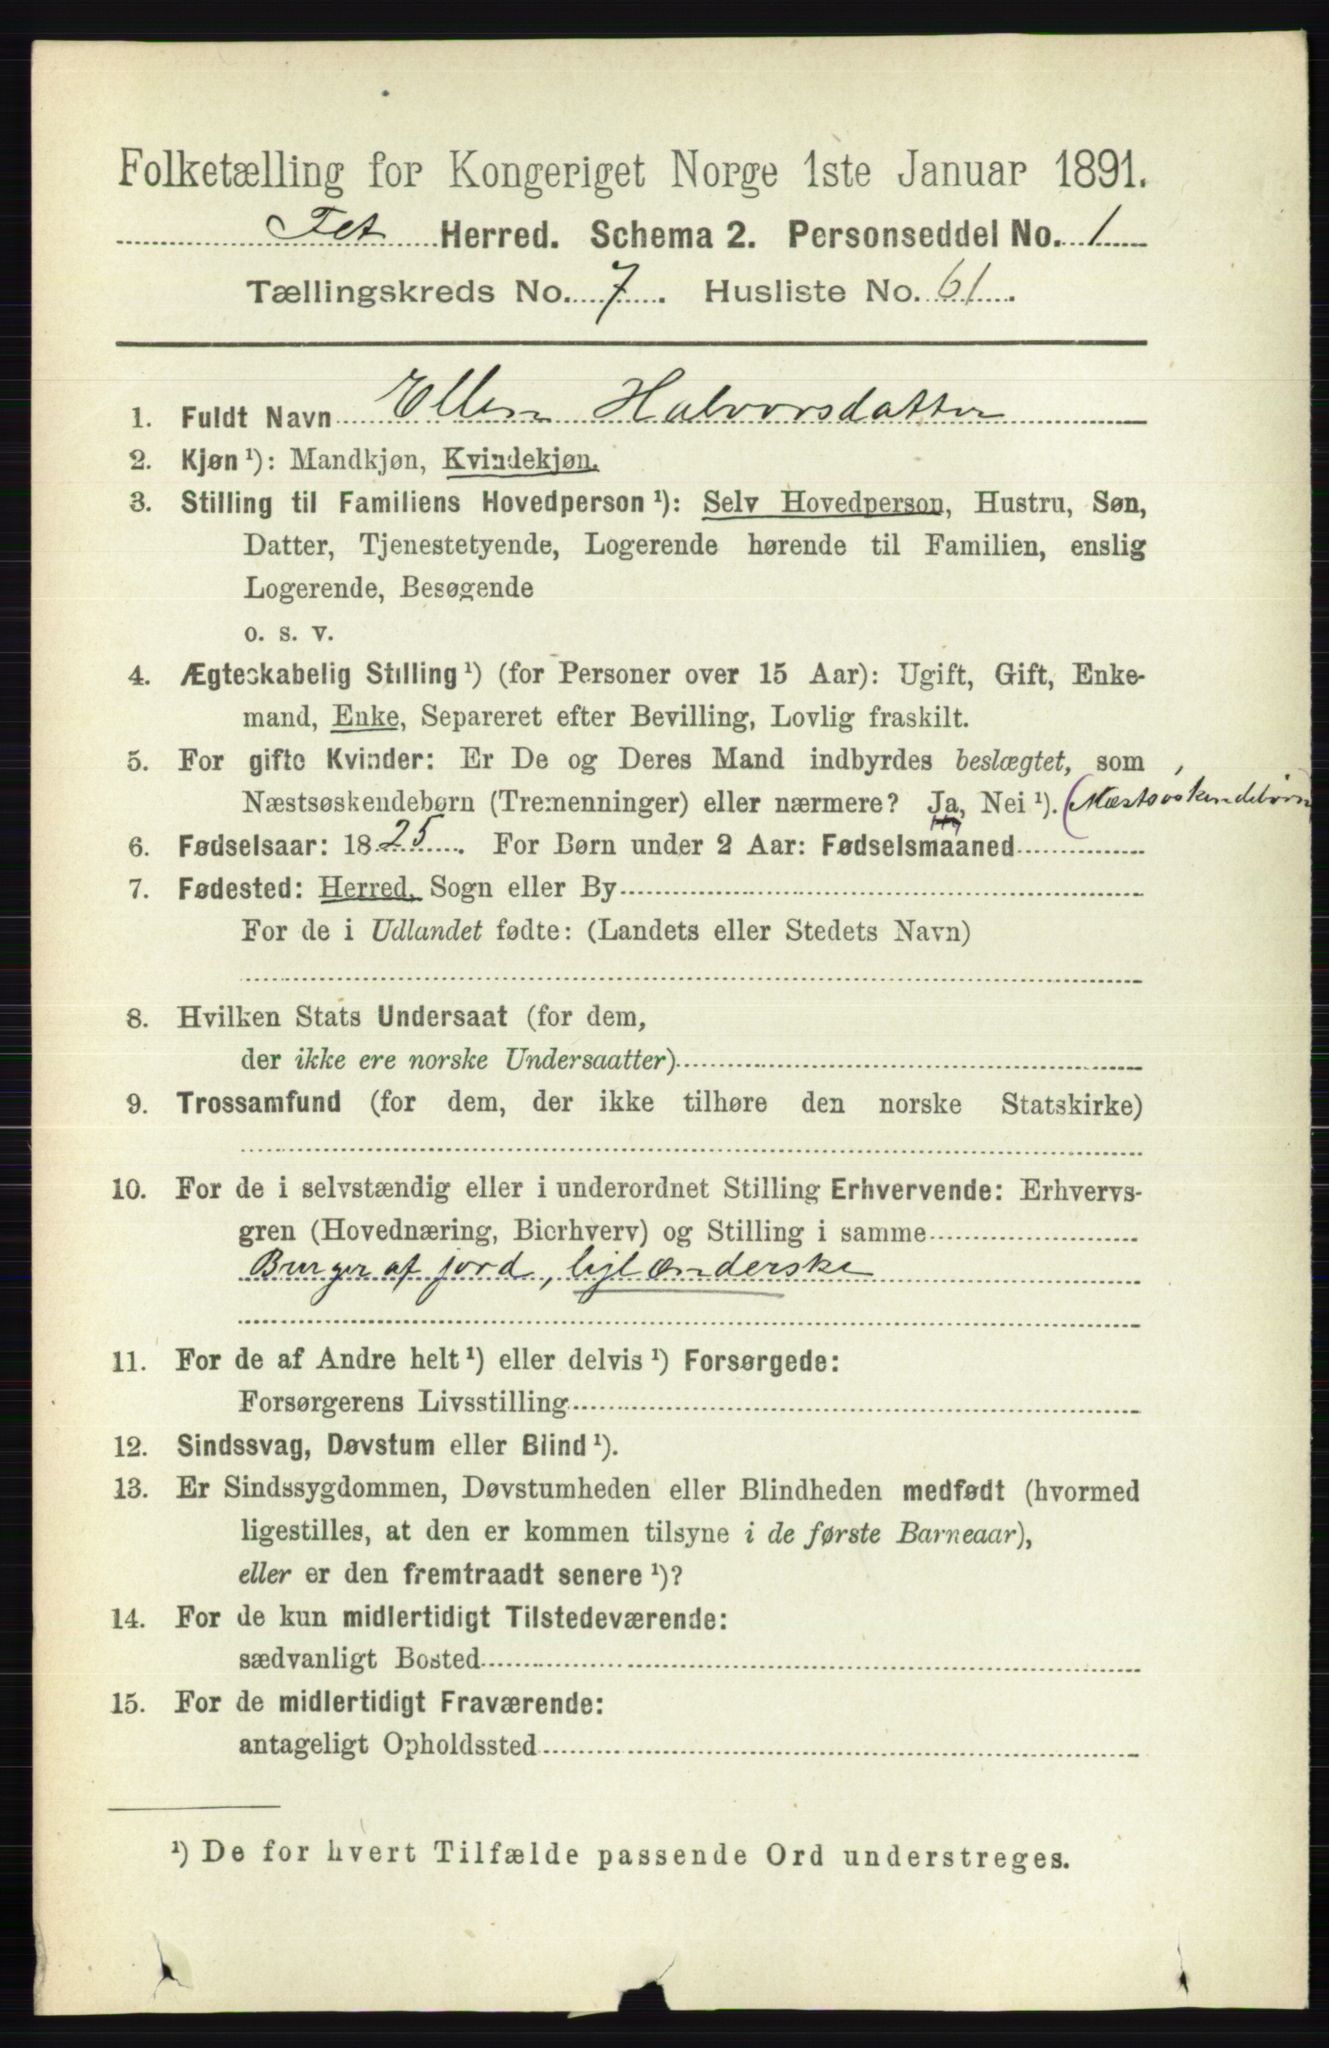 Folketælling for Kongeriget Norge 1ste Januar 1891.
Fet Herred. Schema 2. Personseddel No. 1
Tællingskreds No. 7. Husliste No. 61.
1. Fuldt Navn Ellen Halvorsdatter
2. Kjøn¹): Mandkjøn, Kvindekjøn.
3. Stilling til Familiens Hovedperson¹): Selv Hovedperson, Hustru, Søn,
Datter, Tjenestetyende, Logerende hørende til Familien, enslig
Logerende, Besøgende
o. s. v.
4. Ægteskabelig Stilling¹) (for Personer over 15 Aar): Ugift, Gift, Enke-
mand, Enke, Separeret efter Bevilling, Lovlig fraskilt.
5. For gifte Kvinder: Er De og Deres Mand indbyrdes beslægtet, som
Næstsøskendebørn (Tremenninger) eller nærmere? Ja, Nei¹). (Næstsøskendebørn
6. Fødselsaar: 1825. For Børn under 2 Aar: Fødselsmaaned
7. Fødested: Herred, Sogn eller By
For de i Udlandet fødte: (Landets eller Stedets Navn)
8. Hvilken Stats Undersaat (for dem,
der ikke ere norske Undersaatter)
9. Trossamfund (for dem, der ikke tilhøre den norske Statskirke)
10. For de i selvstændig eller i underordnet Stilling Erhvervende: Erhvervs-
gren (Hovednæring, Bierhverv) og Stilling i samme
Burger af jord,
11. For de af Andre helt¹) eller delvis¹) Forsørgede:
Forsørgerens Livsstilling
12. Sindssvag, Døvstum eller Blind¹).
13. Er Sindssygdommen, Døvstumheden eller Blindheden medfødt (hvormed
ligestilles, at den er kommen tilsyne i de første Barneaar),
eller er den fremtraadt senere¹)?
14. For de kun midlertidigt Tilstedeværende:
sædvanligt Bosted
15. For de midlertidigt Fraværende:
antageligt Opholdssted
¹) De for hvert Tilfælde passende Ord understreges.